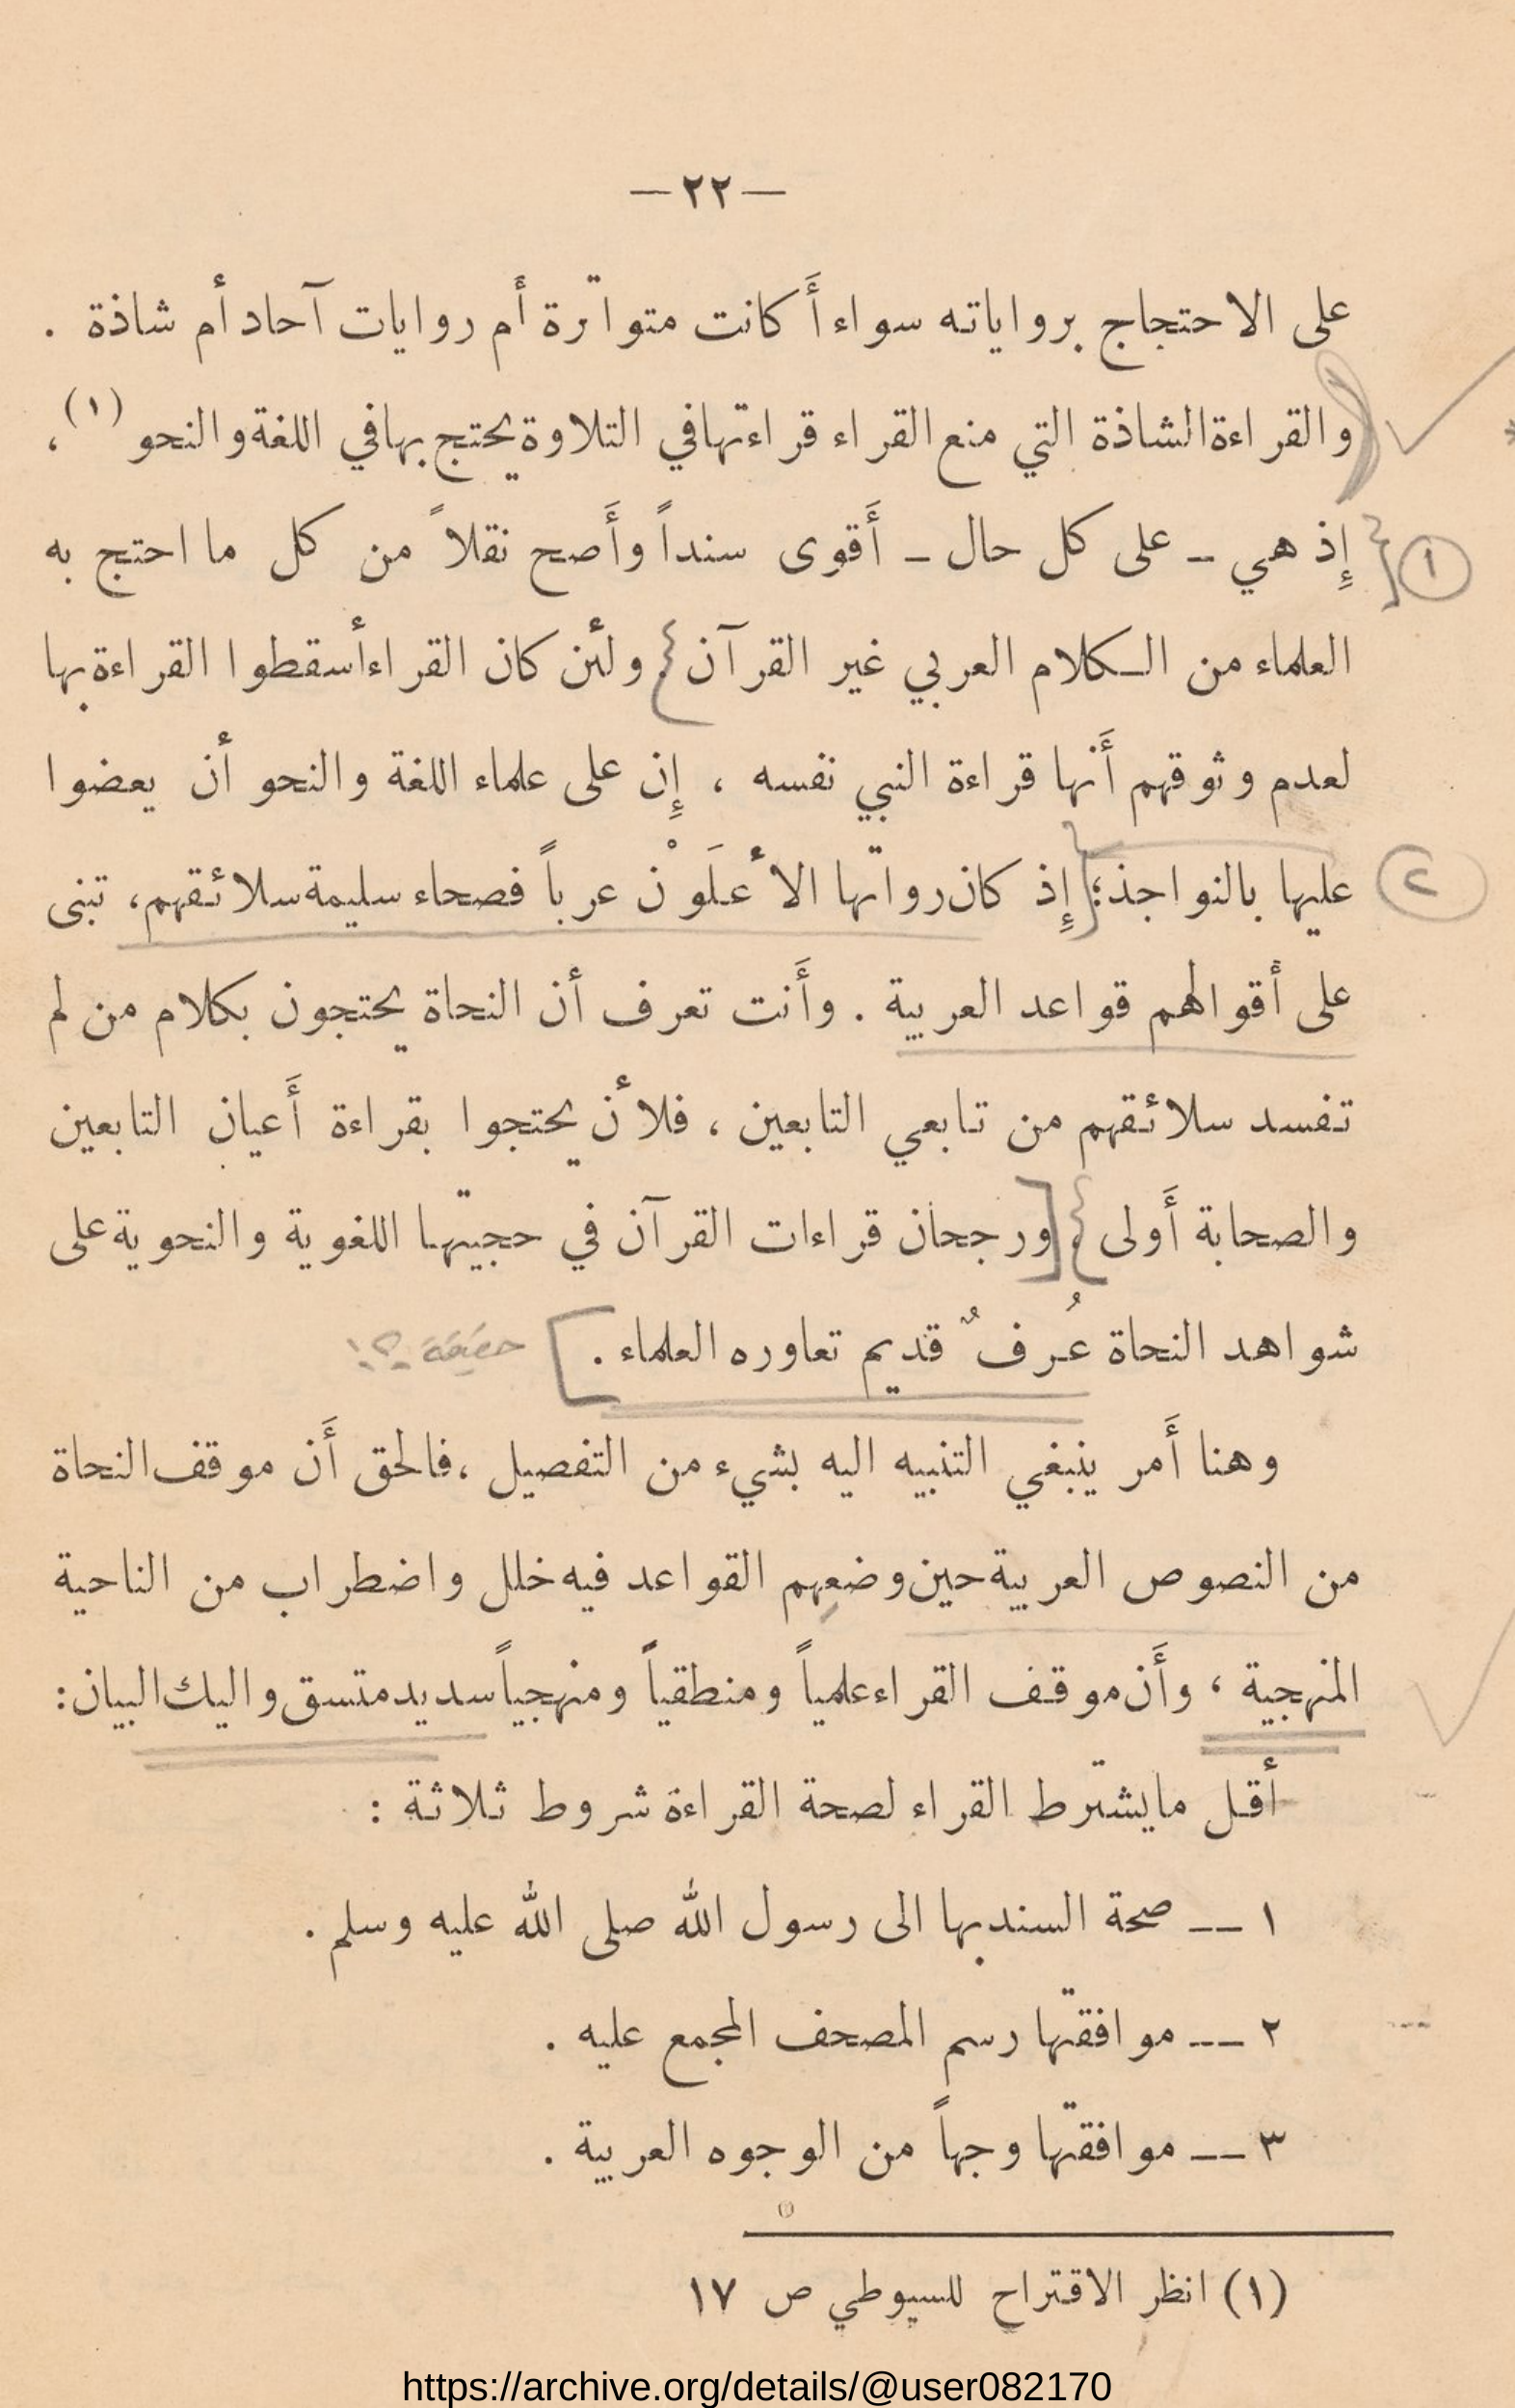 — ٢٢ —
على الاحتجاج برواياته سواء أَكانت متواترة أَم روايات آحاد أم شاذة .
والقراءة الشاذة التي منع القراء قراءتها في التلاوة يحتج بها في اللغة والنحو (١) ،
إِذ هي – على كل حال – أَقوى سنداً وأَصح نقلاً من كل ما احتج به
العلماء من الكلام العربي غير القرآن . ولئن كان القراء أسقطوا القراءة بها
لعدم وثوقهم أَنها قراءة النبي نفسه ، إِن على علماء اللغة والنحو أن يعضوا
عليها بالنواجذ ؛ إِذ كان رواتها الأعلَوْن عرباً فصحاء سليمة سلائقهم، تبنى
على أقوالهم قواعد العربية . وأَنت تعرف أن النحاة يحتجون بكلام من لم
تفسد سلائقهم من تابعي التابعين ، فلأن يحتجوا بقراءة أَعيان التابعين
والصحابة أَولى . ورجحان قراءات القرآن في حجيتها اللغوية والنحوية على
شواهد النحاة عُرفٌ قديم تعاوره العلماء .
وهنا أَمر ينبغي التنبيه اليه بشيء من التفصيل ، فالحق أَن موقف النحاة
من النصوص العربية حين وضعهم القواعد فيه خلل واضطراب من الناحية
المنهجية ؛ وأَن موقف القراء علمياً ومنطقياً ومنهجياً سديد متسق واليك البيان :
أقل ما يشترط القراء لصحة القراءة شروط ثلاثة :
١ — صحة السند بها الى رسول الله صلى الله عليه وسلم .
٢ — موافقتها رسم المصحف المجمع عليه .
٣ — موافقتها وجهاً من الوجوه العربية .
(١) انظر الاقتراح للسيوطي ص ١٧
https://archive.org/details/@user082170
١
٢